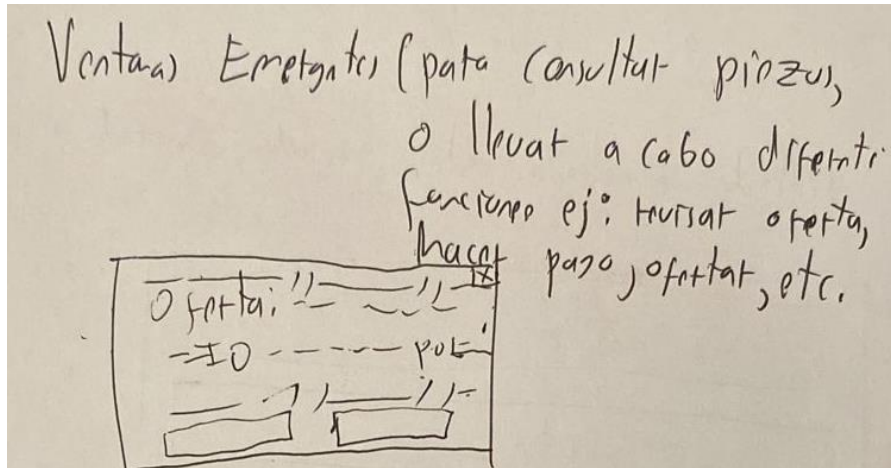 Ventanas Emergentes (para consultar piezas,
o llevar a cabo diferentes
funciones ej: revisar oferta,
hacer pago, ofertar, etc.
X
Oferta:
ID por: